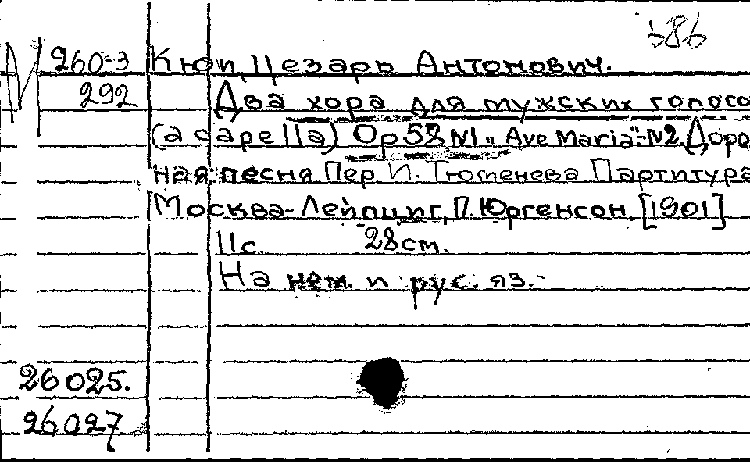 686
М 260-3 Кюи, Цезарь Антонович.
292 Два хора для мужских голосо
(a capella) Op 58 №1 „Ave Maria"-№2. Доро
ная песня Пер. И. Тюменева Партитура
Москва-Лейпциг, П. Юргенсон, [1901]
11с. 28см.
На нем. и рус. яз.
26025.
26027